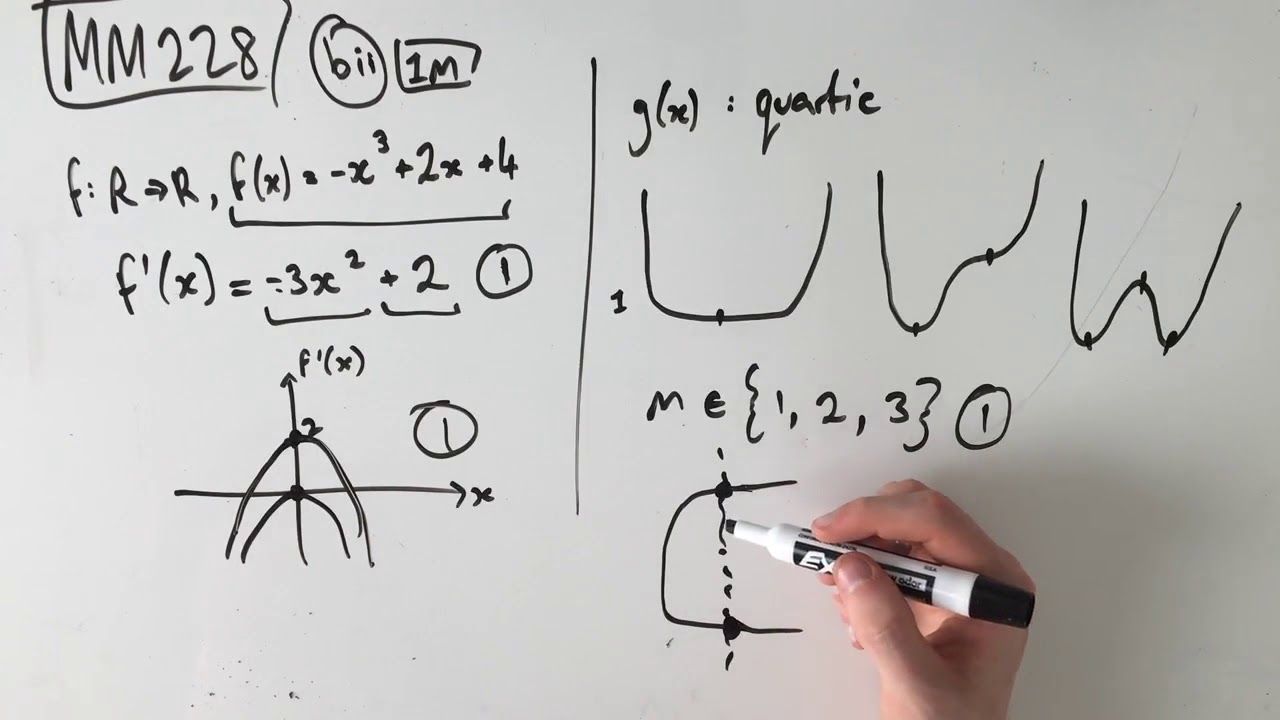 MM228 bii 1M
f: R → R, f(x) = -x³ + 2x + 4
f'(x) = -3x² + 2 ①
f'(x)
2
①
x
g(x) : quartic
1
m ∈ {1, 2, 3} ①
EX